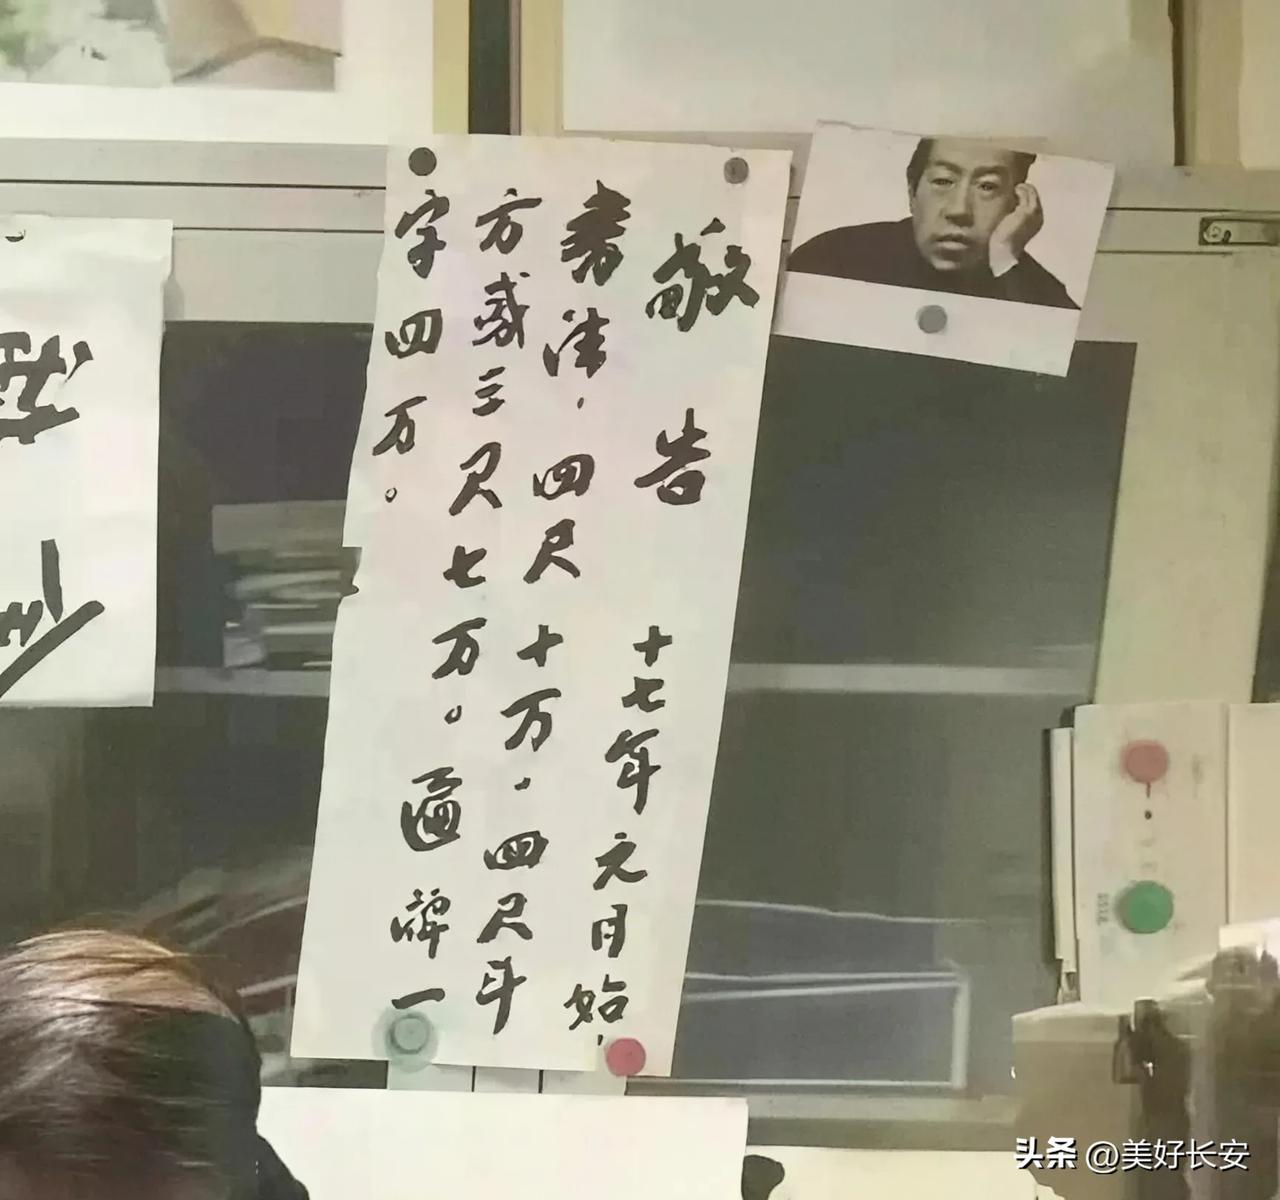 敬告 十七年元月始，
书法，四尺十万，四尺斗
方或三尺七万。匾牌一
字四万。
头条 @美好长安